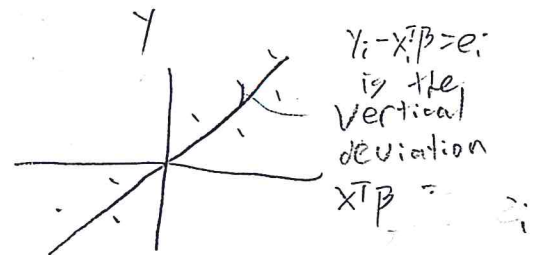 Y
Yᵢ - XᵢᵀΒ = eᵢ
is the
vertical
deviation
XᵀΒ =